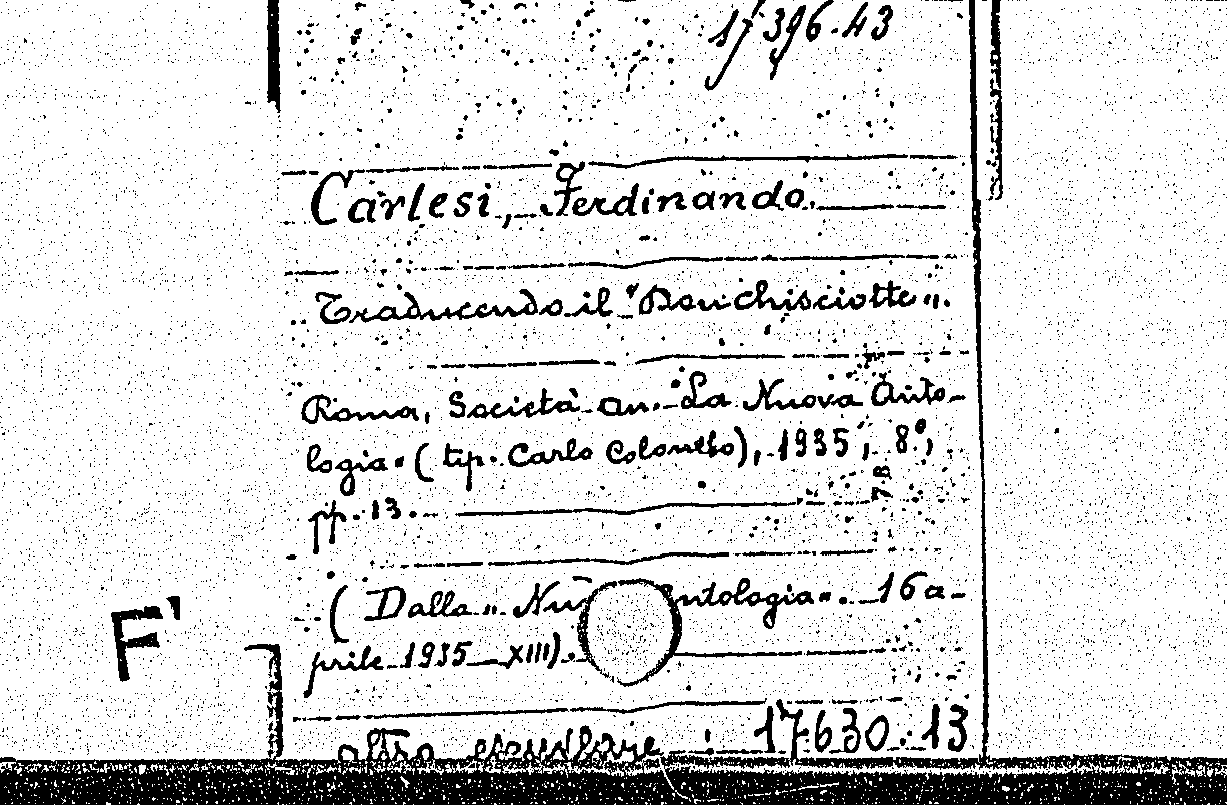 17396.43
Carlesi, Ferdinando.
Traducendo il "Don Chisciotte".
Roma, Società an. La Nuova Anto-
logia. (tip. Carlo Colombo), 1935, 8°,
pp. 13.
7B
(Dalla "Nu ntologia". 16 a-
F'
prile 1935 XIII).
altro esemplare : 17630.13